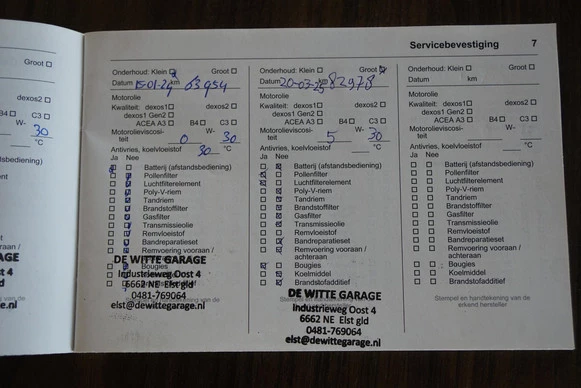 Servicebevestiging 7
Groot
dexos2
B4 C3
W-
30
°C
sbediening)
ent
raan /
t 4
e.nl
Onderhoud: Klein Groot
Datum 15-01-24 km 63954
Motorolie
Kwaliteit: dexos1 dexos2
dexos1 Gen2
ACEA A3 B4 C3
Motorolieviscosi- W-
teit 0 30
Antivries, koelvloeistof 30 °C
Ja Nee
Batterij (afstandsbediening)
Pollenfilter
Luchtfilterelement
Poly-V-riem
Tandriem
Brandstoffilter
Gasfilter
Transmissieolie
Remvloeistof
Bandreparatieset
Remvoering vooraan /
DE WITTE GARAGE
Bougies
Industrieweg Oost 4
6662 NE Elst gld
0481-769064
elst@dewittegarage.nl
Onderhoud: Klein Groot
Datum 20-03-25 km 82978
Motorolie
Kwaliteit: dexos1 dexos2
dexos1 Gen2
ACEA A3 B4 C3
Motorolieviscosi- W-
teit 5 30
Antivries, koelvloeistof °C
Ja Nee
Batterij (afstandsbediening)
Pollenfilter
Luchtfilterelement
Poly-V-riem
Tandriem
Brandstoffilter
Gasfilter
Transmissieolie
Remvloeistof
Bandreparatieset
Remvoering vooraan /
achteraan
Bougies
Koelmiddel
Brandstofadditief
DE WITTE GARAGE
Industrieweg Oost 4
6662 NE Elst gld
0481-769064
elst@dewittegarage.nl
Onderhoud: Klein Groot
Datum km
Motorolie
Kwaliteit: dexos1 dexos2
dexos1 Gen2
ACEA A3 B4 C3
Motorolieviscosi- W-
teit
Antivries, koelvloeistof °C
Ja Nee
Batterij (afstandsbediening)
Pollenfilter
Luchtfilterelement
Poly-V-riem
Tandriem
Brandstoffilter
Gasfilter
Transmissieolie
Remvloeistof
Bandreparatieset
Remvoering vooraan /
achteraan
Bougies
Koelmiddel
Brandstofadditief
Stempel en handtekening van de
erkend hersteller